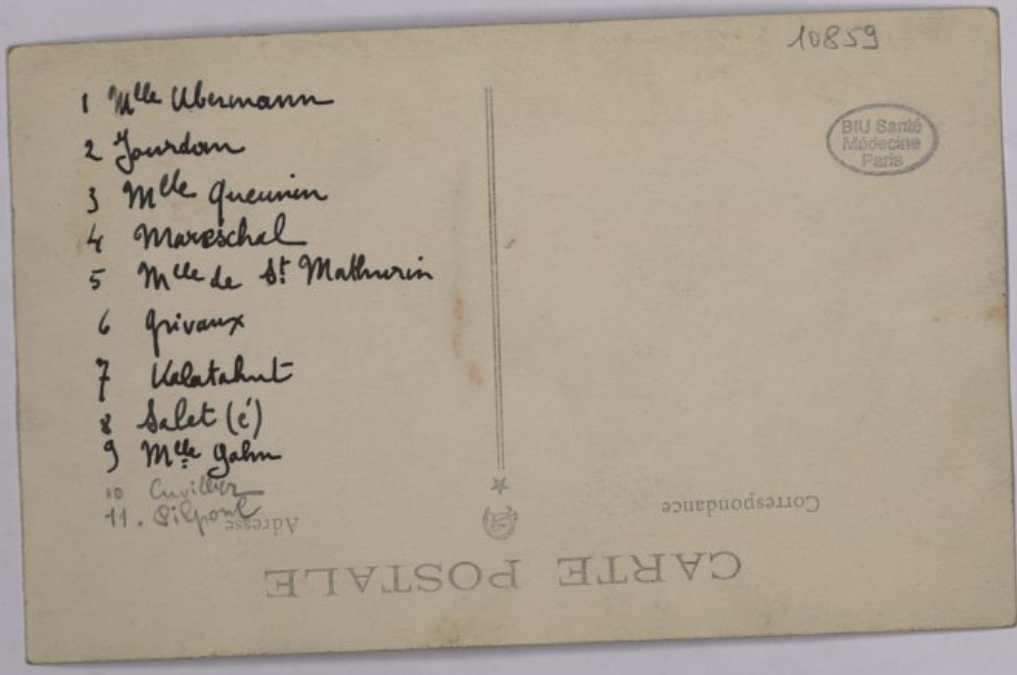 10859
BIU Santé
Médecine
Paris
1 Mlle Ubermann
2 Jourdan
3 Mlle Queunin
4 Mareschal
5 Mlle de St Mathurin
6 Grivaux
7 Kalatahut
8 Salet (é)
9 Mlle Gahn
10 Cuvillier
11.
Adresse
Correspondance
CARTE POSTALE